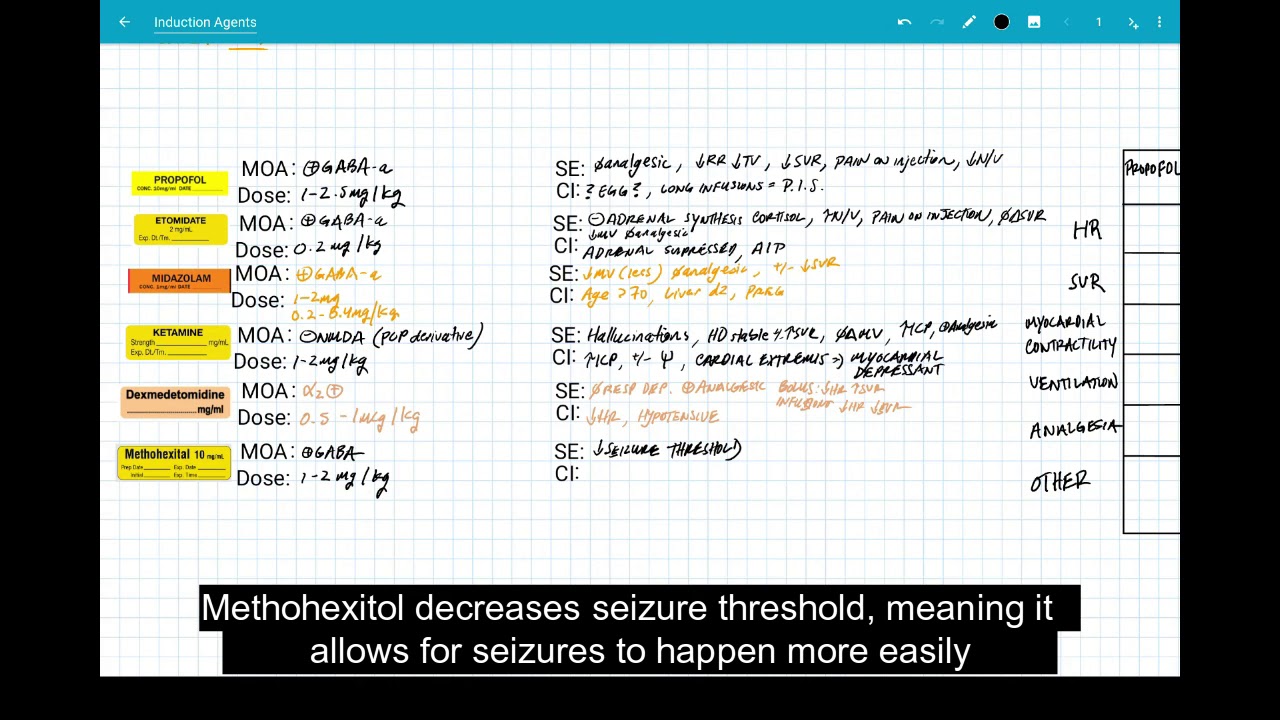 Induction Agents
1
PROPOFOL
CONC. 10mg/ml DATE
MOA: ⊕GABA-a
Dose: 1-2.5mg/kg
SE: Øanalgesic, ↓RR ↓TV, ↓SVR, PAIN on injection, ↓N/V
CI: ? EGG?, LONG INFUSIONS = P.I.S.
ETOMIDATE
2 mg/mL
Exp. Dt./Tm.
MOA: ⊕GABA-a
Dose: 0.2 mg/kg
SE: ⊖ADRENAL SYNTHESIS CORTISOL, ↑N/V, PAIN ON INJECTION, ØΔSVR
↓MV Øanalgesic
CI: ADRENAL SUPPRESSED, AIP
MIDAZOLAM
CONC. 1mg/ml DATE
MOA: ⊕GABA-a
Dose: 1-2mg
0.2-0.4mg/kg
SE: ↓MV (less) Øanalgesic, +/- ↓SVR
CI: Age >70, Liver dz, PREG
KETAMINE
Strength mg/mL
Exp. Dt./Tm.
MOA: ⊖NMDA (PCP derivative)
Dose: 1-2mg/kg
SE: Hallucinations, HD stable ↑SVR, ØΔMV, ↑ICP, ⊕Analgesic
CI: ↑ICP, +/- Ψ, CARDIAL EXTREMIS → MYOCARDIAL
DEPRESSANT
Dexmedetomidine
mg/ml
MOA: α₂⊕
Dose: 0.5-1mcg/kg
SE: ØRESP DEP. ⊕ANALGESIC BOLUS: ↓HR ↑SVR
INFUSION: ↓HR ↓SVR
CI: ↓HR, HYPOTENSIVE
Methohexital 10 mg/mL
Prep Date Exp. Date
Initial Exp. Time
MOA: ⊕GABA
Dose: 1-2 mg/kg
SE: ↓SEIZURE THRESHOLD
CI:
PROPOFOL
HR
SVR
MYOCARDIAL
CONTRACTILITY
VENTILATION
ANALGESIA
OTHER
Methohexitol decreases seizure threshold, meaning it
allows for seizures to happen more easily